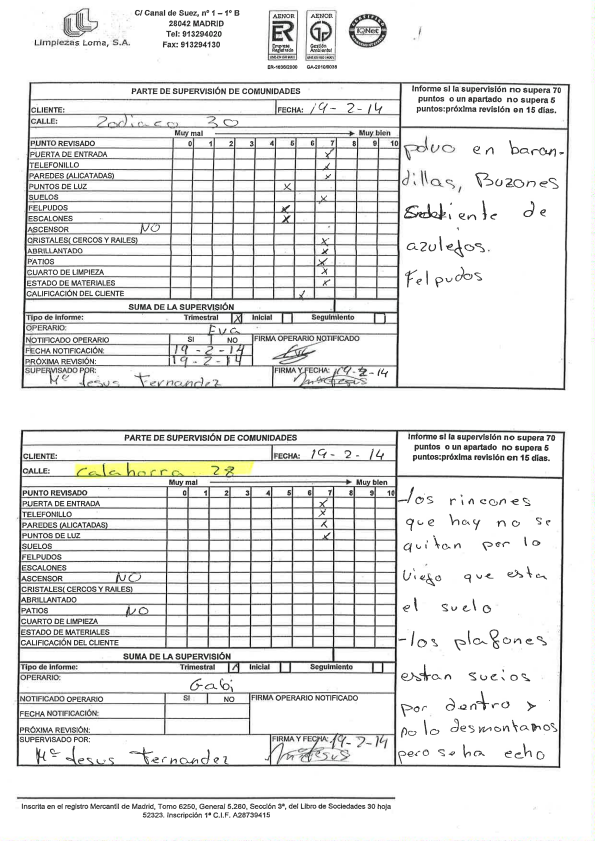 Limpiezas Loma, S.A.
C/ Canal de Suez, nº 1 – 1º B
28042 MADRID
Tel: 913294020
Fax: 913294130
AENOR
ER
Empresa Registrada
ER-1635/2000
AENOR
Gestión Ambiental
IQNet
PARTE DE SUPERVISIÓN DE COMUNIDADES
Informe si la supervisión no supera 70 puntos o un apartado no supera 5 puntos:próxima revisión en 15 dias.
CLIENTE: FECHA: 19-2-14
CALLE: Zodiaco 30
Muy mal Muy bien
PUNTO REVISADO 0 1 2 3 4 5 6 7 8 9 10
PUERTA DE ENTRADA X
TELEFONILLO X
PAREDES (ALICATADAS) X
PUNTOS DE LUZ X
SUELOS X
FELPUDOS X
ESCALONES X
ASCENSOR NO
CRISTALES( CERCOS Y RAILES) X
ABRILLANTADO X
PATIOS X
CUARTO DE LIMPIEZA X
ESTADO DE MATERIALES X
CALIFICACIÓN DEL CLIENTE X
SUMA DE LA SUPERVISIÓN
Tipo de informe: Trimestral X Inicial Seguimiento
OPERARIO: Eva
NOTIFICADO OPERARIO SI NO FIRMA OPERARIO NOTIFICADO
FECHA NOTIFICACIÓN: 19-2-14
PRÓXIMA REVISIÓN: 19-2-14
SUPERVISADO POR: Mª Jesus Fernandez FIRMA Y FECHA: 19-2-14
polvo en baran-
dillas, Buzones
de
azulejos.
Felpudos
PARTE DE SUPERVISIÓN DE COMUNIDADES
Informe si la supervisión no supera 70 puntos o un apartado no supera 5 puntos:próxima revisión en 15 dias.
CLIENTE: FECHA: 19-2-14
CALLE: Calahorra 28
Muy mal Muy bien
PUNTO REVISADO 0 1 2 3 4 5 6 7 8 9 10
PUERTA DE ENTRADA X
TELEFONILLO X
PAREDES (ALICATADAS) X
PUNTOS DE LUZ X
SUELOS
FELPUDOS
ESCALONES
ASCENSOR NO
CRISTALES( CERCOS Y RAILES)
ABRILLANTADO
PATIOS NO
CUARTO DE LIMPIEZA
ESTADO DE MATERIALES
CALIFICACIÓN DEL CLIENTE
SUMA DE LA SUPERVISIÓN
Tipo de informe: Trimestral Inicial Seguimiento
OPERARIO: Gabi
NOTIFICADO OPERARIO SI NO FIRMA OPERARIO NOTIFICADO
FECHA NOTIFICACIÓN:
PRÓXIMA REVISIÓN:
SUPERVISADO POR: Mª Jesus Fernandez FIRMA Y FECHA: 19-2-14
-los rincones
que hay no se
quitan por lo
viejo que esta
el suelo
-los plafones
estan sucios
por dentro y
no lo desmontamos
pero se ha echo
Inscrita en el registro Mercantil de Madrid, Tomo 6250, General 5.260, Sección 3ª, del Libro de Sociedades 30 hoja
52323. Inscripción 1ª C.I.F. A28739415